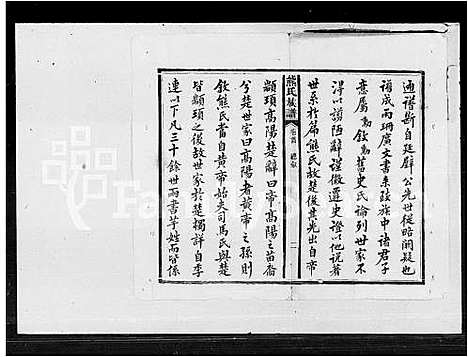 通譜斷自廷辟公先世從略闕疑也
譜成而珊廣文書來跋族中諸君子
意屬為敘為舊史氏論列世家不
得以譾陋辭謹徵遷史證以他說著
世系於篇熊氏故楚後其先出自帝
熊氏族譜 卷首 總敘 一
顓頊高陽楚辭曰帝高陽之苗裔
兮楚世家曰高陽者黃帝之孫則
敘熊氏當自黃帝始史司馬氏與楚
皆顓頊之後故世家於楚獨詳自季
連以下凡三十餘世而書芉姓而皆係
FamilySearch